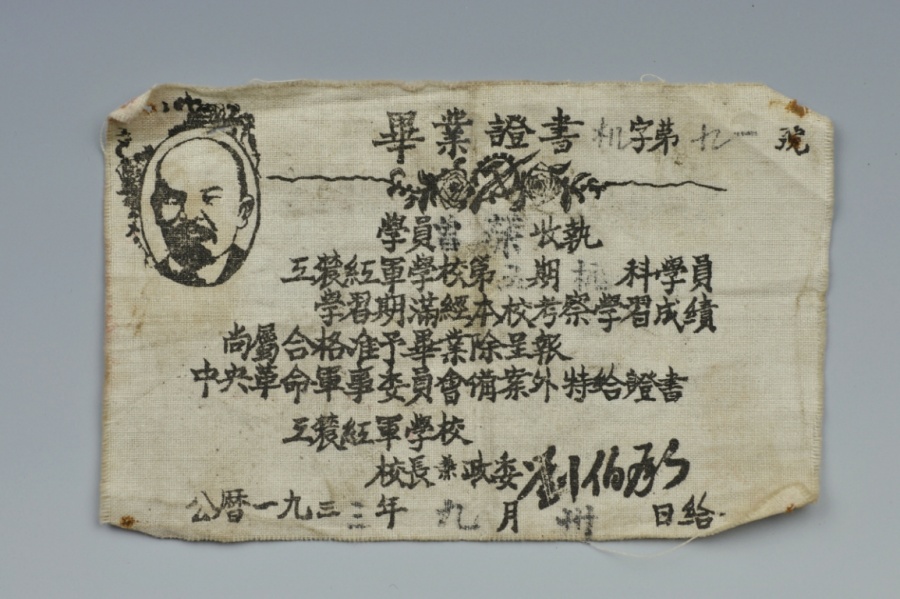 畢業證書 机字第九一號
學員曾葉收執
工農紅軍學校第 期 科學員
學習期滿經本校考察學習成績
尚屬合格准予畢業除呈報
中央革命軍事委員會備案外特給證書
工農紅軍學校
校長兼政委劉伯承
公曆一九三二年九月卅日給